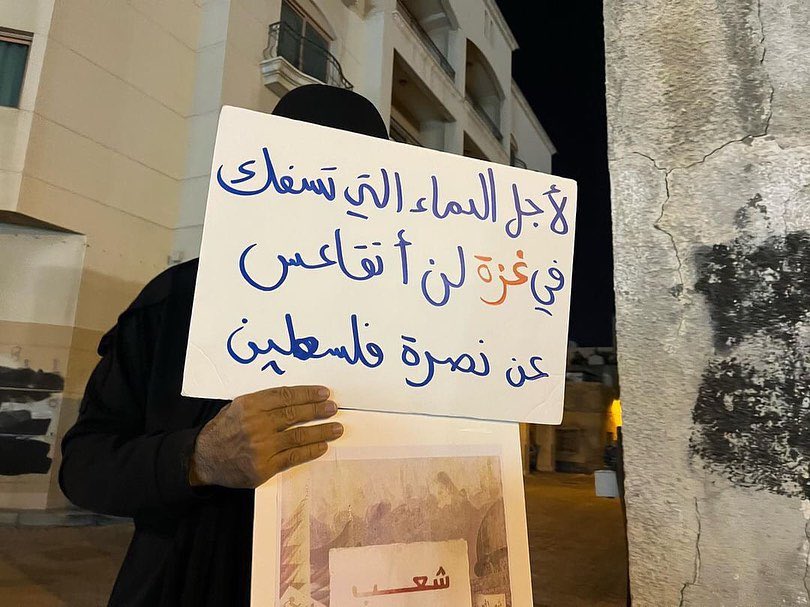 لأجل الدماء التي تسفك
في غزة لن أتقاعس
عن نصرة فلسطين
شعب